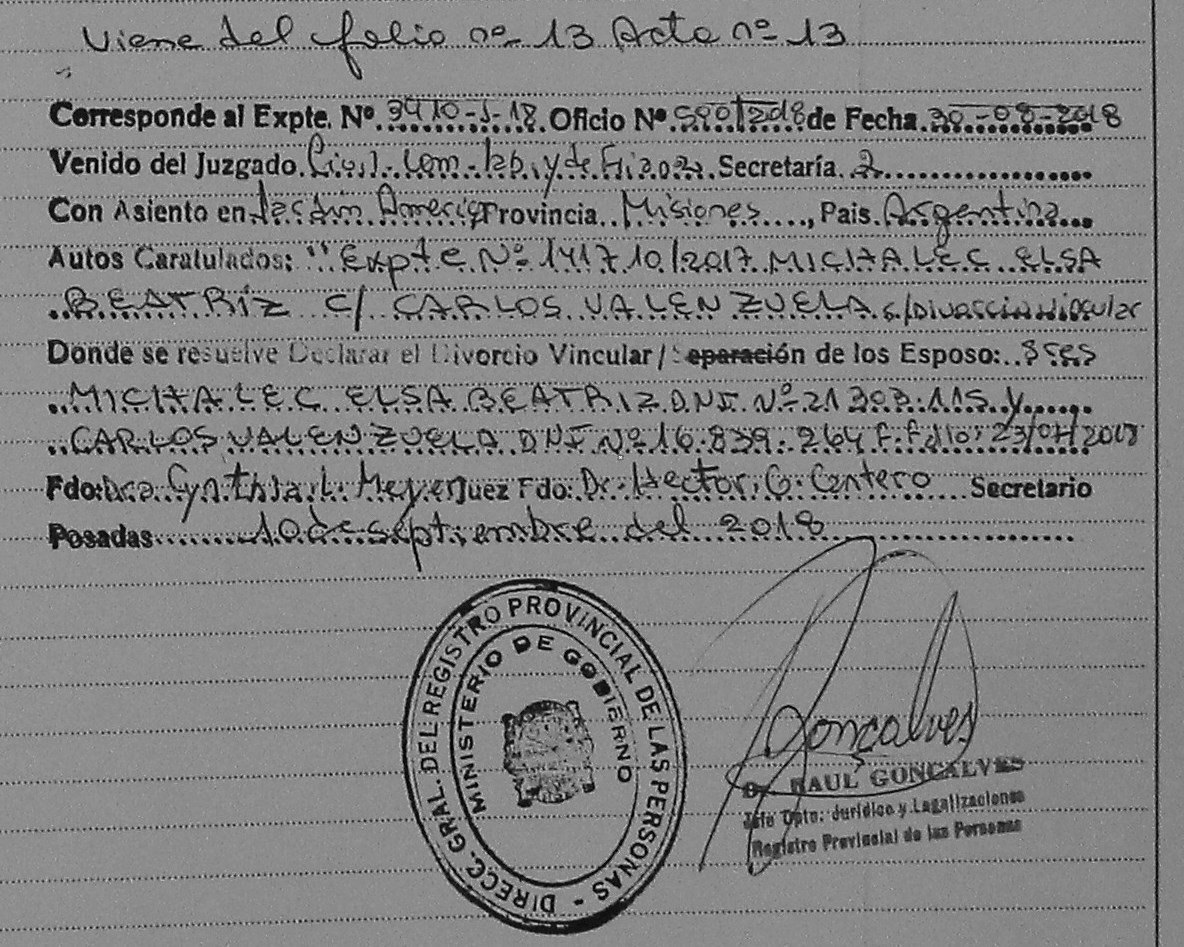 Viene del folio nº 13 Acta nº 13
Corresponde al Expte. Nº. 3410-J-18. Oficio Nº 590/2018 de Fecha. 30-08-2018
Venido del Juzgado. Civil. Com. lab. y de Flia. Secretaría. 2
Con Asiento en Jardín América Provincia.. Misiones ...., Pais. Argentina...
Autos Caratulados: "Expte Nº 141710/2017 MICHALEC ELSA
BEATRIZ C/ CARLOS VALENZUELA S/Divorcio Vincular
Donde se resuelve Declarar el Divorcio Vincular / Separación de los Esposo: Sres
MICHALEC ELSA BEATRIZ DNI Nº 21.303.115 y
CARLOS VALENZUELA DNI Nº 16.839.264 F. Fallo: 23/07/2018
Fdo: Dra. Cynthia L. Meyer Juez Fdo: Dr. Hector G. Centero .... Secretario
Posadas....... 10 de septiembre del 2018
DIRECC. GRAL. DEL REGISTRO PROVINCIAL DE LAS PERSONAS -
MINISTERIO DE GOBIERNO
Gonçalves
Dr. RAUL GONCALVES
Jefe Dpto: Jurídico y Legalizaciones
Registro Provincial de las Personas